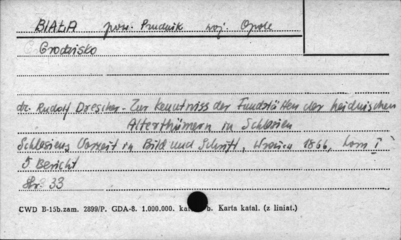 BIAŁA pow. Prudnik woj. Opole
Grodzisko
dr. Rudolf Drescher - Zur Kenntniss der Fundstätten der heidnischen
Alterthümern in Schlesien
Schlesiens Vorzeit in Bild und Schrift, Wrocław 1866, tom I
5 Bericht
Str 33
CWD B-15b.zam. 2899/P. GDA-8. 1.000.000. Karta katal. (z liniat.)